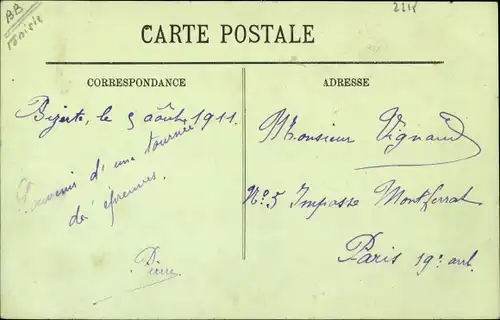 BB
2218
CARTE POSTALE
CORRESPONDANCE
ADRESSE
Bizerte, le 5 août 1911.
Souvenir d'une tournée
de épreuves.
Pierre
Monsieur Vignaud
N° 5 Impasse Montferrat
Paris 19e arrt.